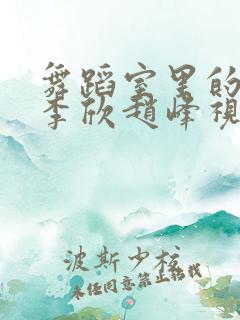 舞蹈室里的
李欣趙峰視
波斯少校
未经同意禁止转载